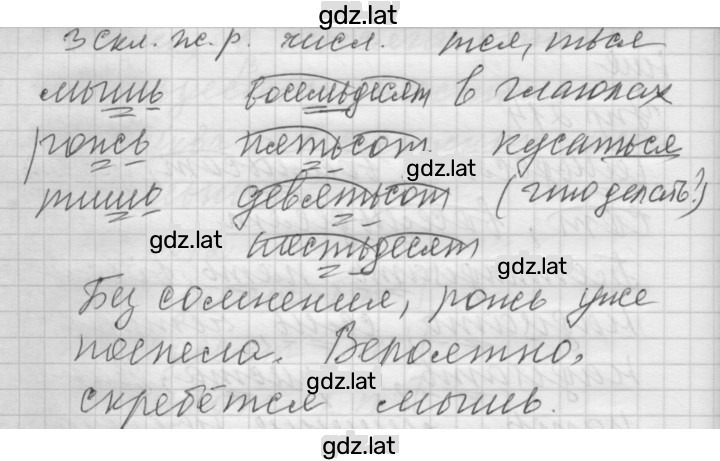 gdz.lat
3 скл. ж. р. числ. тся, ться
мышь восемьдесят в глаголах
рожь пятьсот кусаться
gdz.lat
тишь девятьсот (что делать?)
gdz.lat
шестьдесят
gdz.lat
Без сомнения, рожь уже
поспела. Вероятно,
gdz.lat
скребётся мышь.
gdz.lat